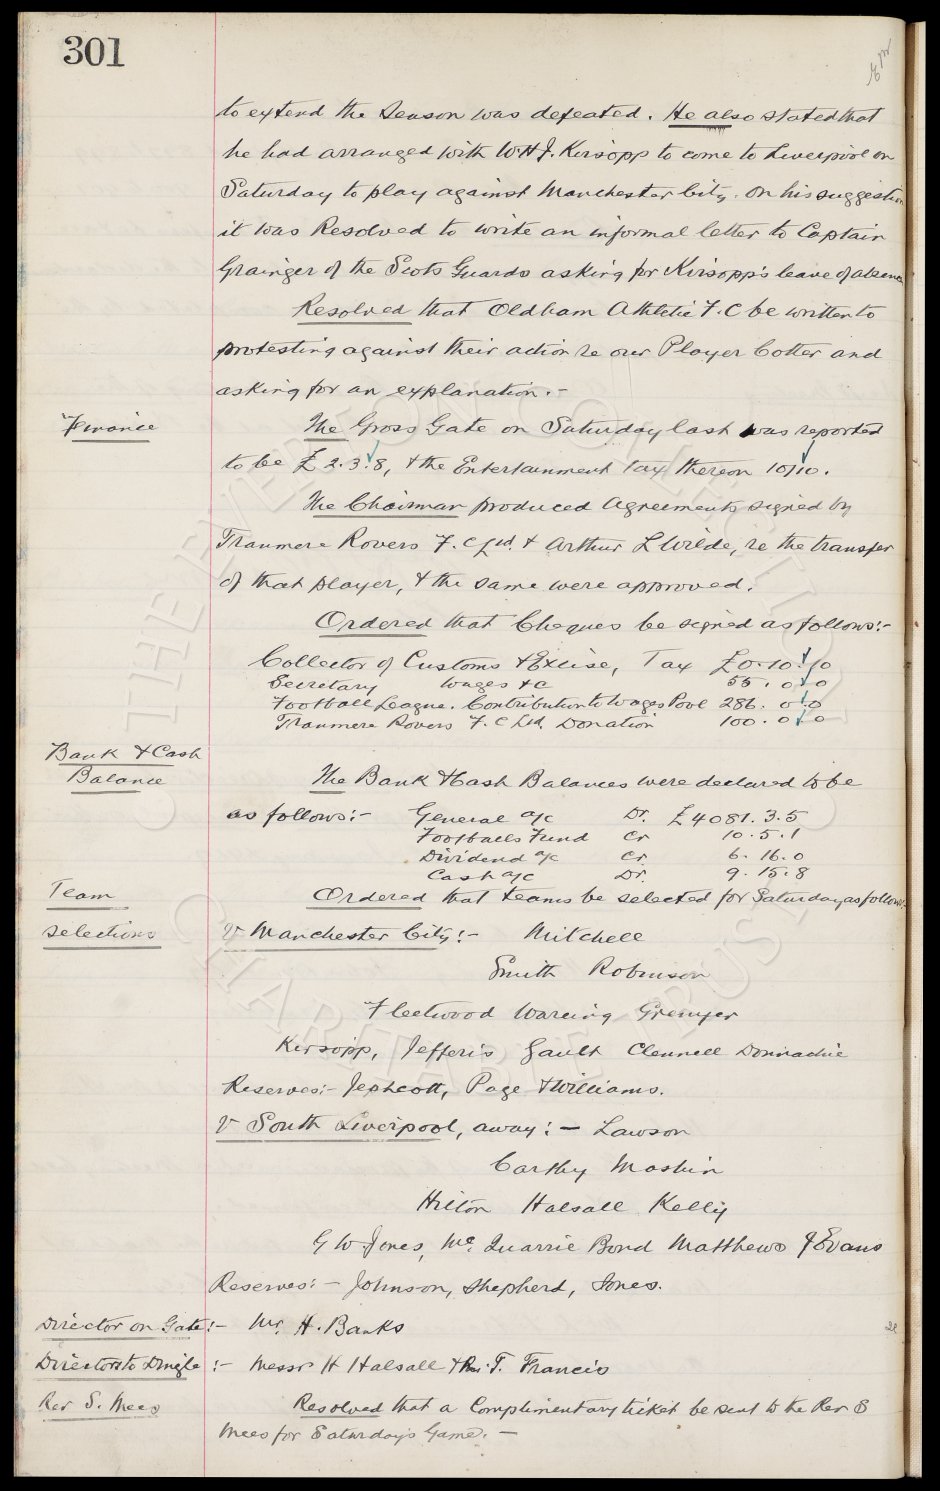 301
to extend the Season was defeated. He also stated that
he had arranged with W.H.J. Kirsopp to come to Liverpool on
Saturday to play against Manchester City. On his suggestion
it was Resolved to write an informal letter to Captain
Grainger of the Scots Guards asking for Kirsopp's leave of absence
Resolved that Oldham Athletic F.C be written to
protesting against their action re our Player Cotter and
asking for an explanation.-
Finance
The Gross Gate on Saturday last was reported
to be £2.3.8, & the Entertainment Tax thereon 10/10.
The Chairman produced Agreements signed by
Tranmere Rovers F.C Ltd. & Arthur L Wilde, re the transfer
of that player, & the same were approved.
Ordered that Cheques be signed as follows:-
Collector of Customs & Excise, Tax £0.10.10
Secretary Wages &c 55.0.0
Football League. Contribution to Wages Pool 286.0.0
Tranmere Rovers F.C Ltd. Donation 100.0.0
Bank & Cash
Balance
The Bank & Cash Balances were declared to be
as follows:- General a/c Dr. £4081.3.5
Footballs Fund Cr 10.5.1
Dividend a/c Cr. 6.16.0
Cash a/c Dr. 9.15.8
Team
Selections
Ordered that teams be selected for Saturday as follows:-
V Manchester City:- Mitchell
Smith Robinson
Fleetwood Wareing Grenyer
Kirsopp, Jefferis Gault Clennell Donnachie
Reserves:- Jephcott, Page & Williams.
V South Liverpool, away:- Lawson
Carthy Maskin
Hilton Halsall Kelly
G W Jones, Mc.Quarrie Bond Matthews J Evans
Reserves:- Johnson, Shepherd, Jones.
Director on Gate:- Mr. H. Banks
Directors to Dingle:- Messrs H Halsall & T. Francis
Rev S. Mees
Resolved that a Complimentary ticket be sent to the Rev S
Mees for Saturday's Game.-
THE EVERTON COLLECTION
CHARITABLE TRUST
©